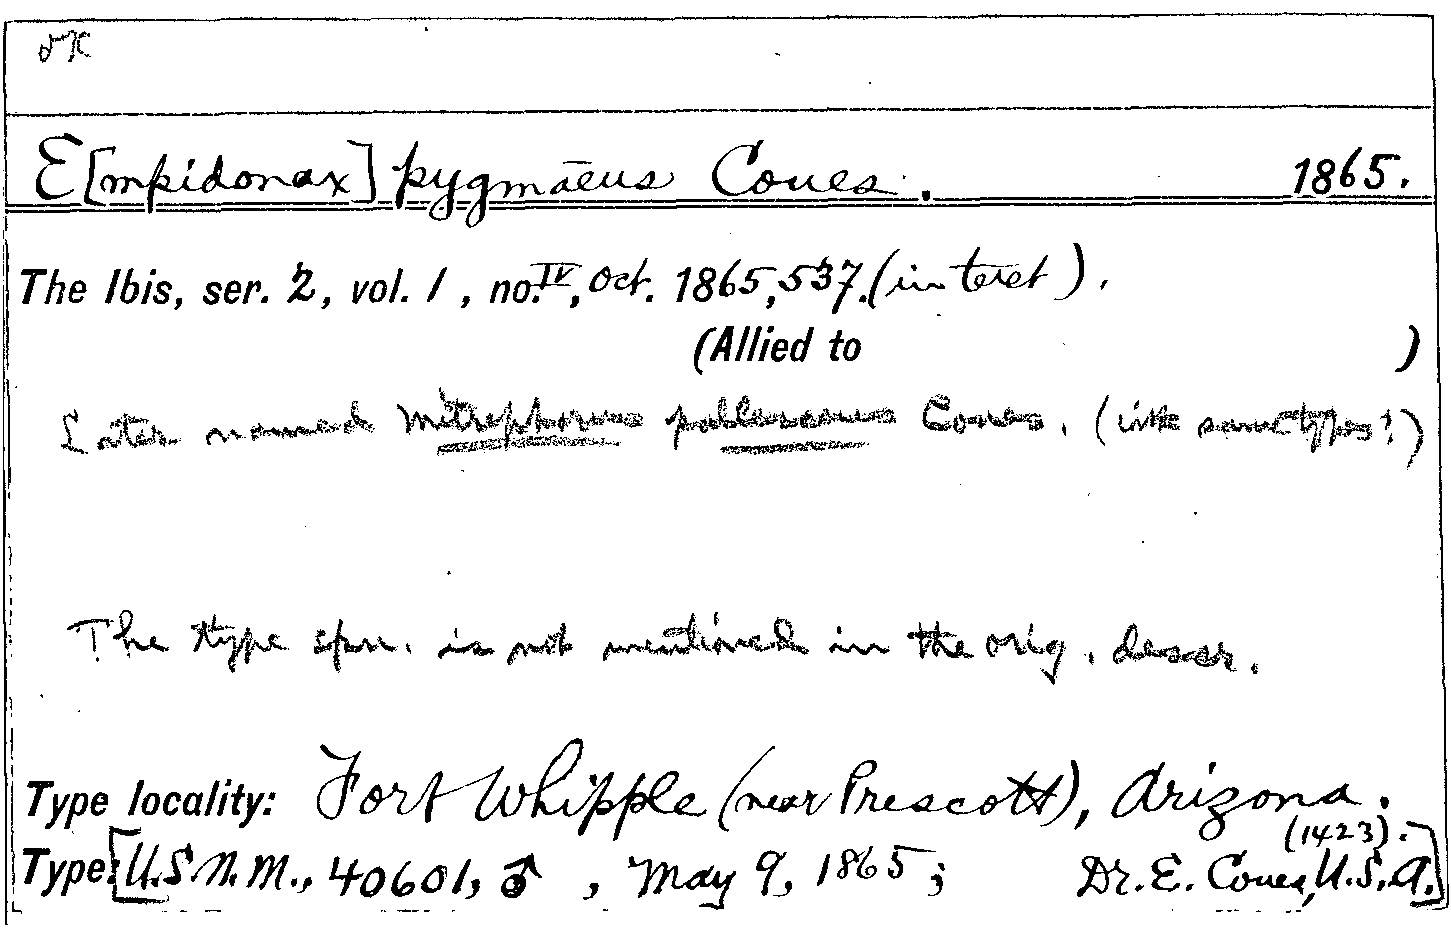 OK
E[mpidonax] pygmāeus Coues. 1865.
The Ibis, ser. 2, vol. 1, no. IV, Oct. 1865, 537. (in text).
(Allied to )
Later named Mitrephorus pallescens Coues. (with same types?)
The type spn. is not mentioned in the orig. descr.
Type locality: Fort Whipple (near Prescott), Arizona.
(1423).
Type: [U.S.N.M., 40601, ♂, May 9, 1865; Dr. E. Coues, U.S.A.]